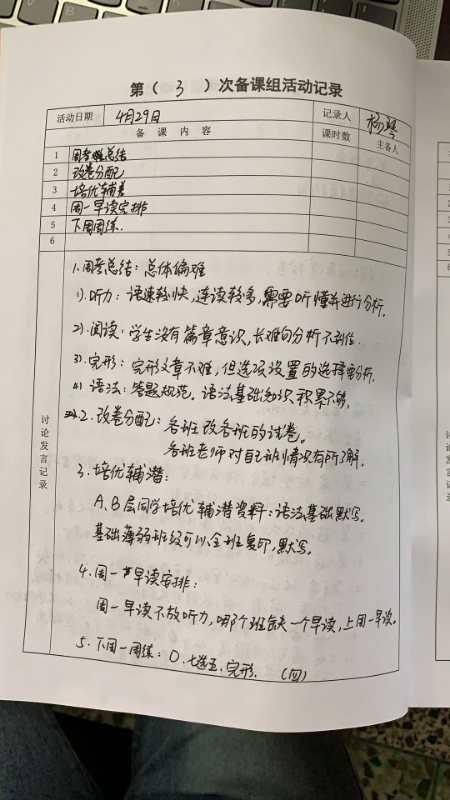 第（ 3 ）次备课组活动记录
活动日期 4月29日 记录人 杨琴
备 课 内 容 课时数 主备人
1 周考总结
2 改卷分配
3 培优辅差
4 周一早读安排
5 下周周练.
6
讨论发言记录
1.周考总结：总体偏难
1).听力：语速较快，连读较多，需要听懂并进行分析.
2).阅读：学生没有篇章意识，长难句分析不到位.
3).完形：完形文章不难，但选项设置的选择要分析.
4) 语法：答题规范. 语法基础知识积累不够.
2.改卷分配：各班改各班的试卷.
各班老师对自己班情况有所了解.
3.培优辅潜：
A、B层同学培优辅潜资料：语法基础默写.
基础薄弱班级可以全班复印，默写.
4.周一早读安排：
周一早读不放听力，哪个班缺一个早读，上周一早读.
5.下周一周练：D、七选五、完形. （四）